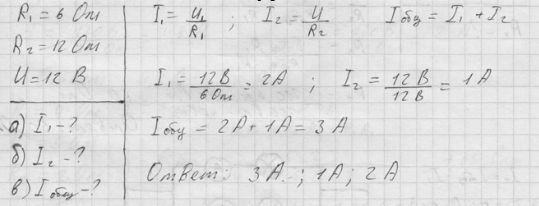 R₁ = 6 Ом
R₂ = 12 Ом
U = 12 В
а) I₁ - ?
б) I₂ - ?
в) I общ - ?
I₁ = U₁/R₁ ; I₂ = U/R₂ I общ = I₁ + I₂
I₁ = 12В/6 Ом = 2А ; I₂ = 12 В/12 В = 1 А
I общ = 2А + 1А = 3 А
Ответ: 3 А. ; 1А ; 2 А